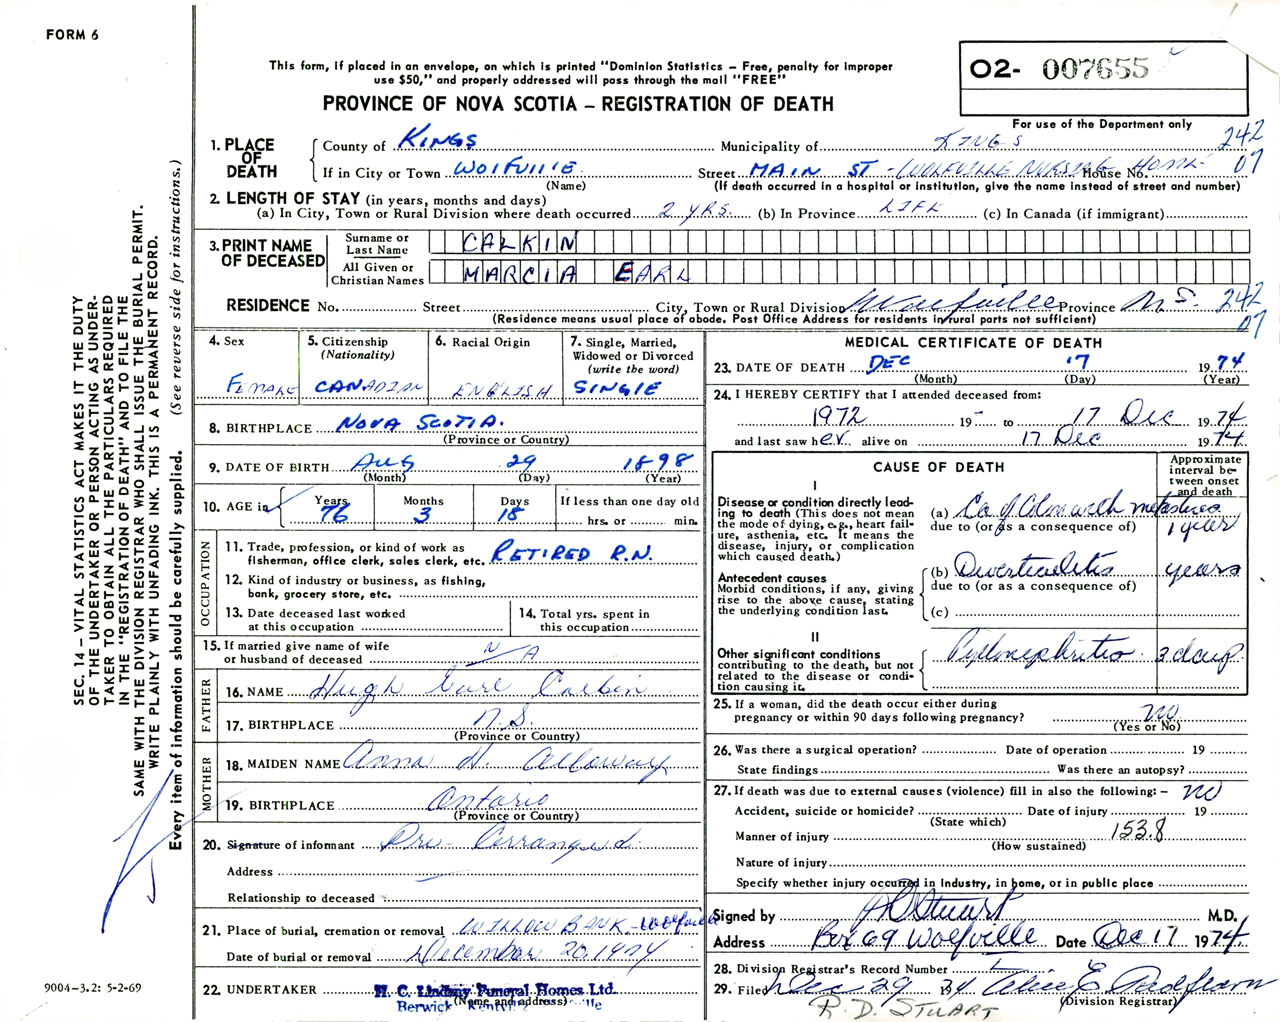 FORM 6
This form, if placed in an envelope, on which is printed "Dominion Statistics – Free, penalty for improper
use $50," and properly addressed will pass through the mail "FREE"
PROVINCE OF NOVA SCOTIA – REGISTRATION OF DEATH
O2- 007655
For use of the Department only
SEC. 14 – VITAL STATISTICS ACT MAKES IT THE DUTY
OF THE UNDERTAKER OR PERSON ACTING AS UNDER-
TAKER TO OBTAIN ALL THE PARTICULARS REQUIRED
IN THE "REGISTRATION OF DEATH" AND TO FILE THE
SAME WITH THE DIVISION REGISTRAR WHO SHALL ISSUE THE BURIAL PERMIT.
WRITE PLAINLY WITH UNFADING INK. THIS IS A PERMANENT RECORD.
Every item of information should be carefully supplied. (See reverse side for instructions.)
1. PLACE OF DEATH
County of KINGS Municipality of KINGS 242
If in City or Town WOLFVILLE Street MAIN ST - WOLFVILLE NURSING HOME House No. 07
(Name) (If death occurred in a hospital or institution, give the name instead of street and number)
2. LENGTH OF STAY (in years, months and days)
(a) In City, Town or Rural Division where death occurred 2 YRS. (b) In Province LIFE (c) In Canada (if immigrant)
3. PRINT NAME OF DECEASED
Surname or Last Name CALKIN
All Given or Christian Names MARCIA EARL
RESIDENCE No. Street City, Town or Rural Division Wolfville Province N.S. 242
(Residence means usual place of abode. Post Office Address for residents in rural parts not sufficient) 07
4. Sex FEMALE
5. Citizenship (Nationality) CANADIAN
6. Racial Origin ENGLISH
7. Single, Married, Widowed or Divorced (write the word) SINGLE
8. BIRTHPLACE NOVA SCOTIA.
(Province or Country)
9. DATE OF BIRTH AUG 29 1898
(Month) (Day) (Year)
10. AGE in Years 76 Months 3 Days 18 If less than one day old
hrs. or min.
OCCUPATION
11. Trade, profession, or kind of work as
fisherman, office clerk, sales clerk, etc. RETIRED R.N.
12. Kind of industry or business, as fishing,
bank, grocery store, etc.
13. Date deceased last worked
at this occupation
14. Total yrs. spent in
this occupation
15. If married give name of wife
or husband of deceased N/A
FATHER
16. NAME Hugh Earl Calkin
17. BIRTHPLACE N.S.
(Province or Country)
MOTHER
18. MAIDEN NAME Anna H. Alloway
19. BIRTHPLACE Ontario
(Province or Country)
20. Signature of informant Pre- Arranged.
Address
Relationship to deceased
21. Place of burial, cremation or removal WILLOW BANK - Wolfville
Date of burial or removal December 20, 1974
22. UNDERTAKER H. C. Lindsay Funeral Homes Ltd.
(Name and address)
Berwick Kentville
9004-3.2: 5-2-69
MEDICAL CERTIFICATE OF DEATH
23. DATE OF DEATH DEC 17 1974
(Month) (Day) (Year)
24. I HEREBY CERTIFY that I attended deceased from:
1972 19- to 17 Dec 1974
and last saw her alive on 17 Dec 1974
CAUSE OF DEATH
Approximate interval between onset and death
I
Disease or condition directly lead-
ing to death (This does not mean
the mode of dying, e.g., heart fail-
ure, asthenia, etc. It means the
disease, injury, or complication
which caused death.)
(a) Ca of Colon with metastases 1 year
due to (or as a consequence of)
Antecedent causes
Morbid conditions, if any, giving
rise to the above cause, stating
the underlying condition last.
(b) Diverticulitis years
due to (or as a consequence of)
(c)
II
Other significant conditions
contributing to the death, but not
related to the disease or condi-
tion causing it.
Pyelonephritis 3 days.
25. If a woman, did the death occur either during
pregnancy or within 90 days following pregnancy? No.
(Yes or No)
26. Was there a surgical operation? Date of operation 19
State findings Was there an autopsy?
27. If death was due to external causes (violence) fill in also the following: – No
Accident, suicide or homicide? Date of injury 19
(State which)
Manner of injury 153.8
(How sustained)
Nature of injury
Specify whether injury occurred in Industry, in home, or in public place
Signed by R D Stuart M.D.
Address Box 69 Wolfville Date Dec 17 1974.
28. Division Registrar's Record Number
29. Filed Dec 29 74 E
(Division Registrar)
R. D. STUART